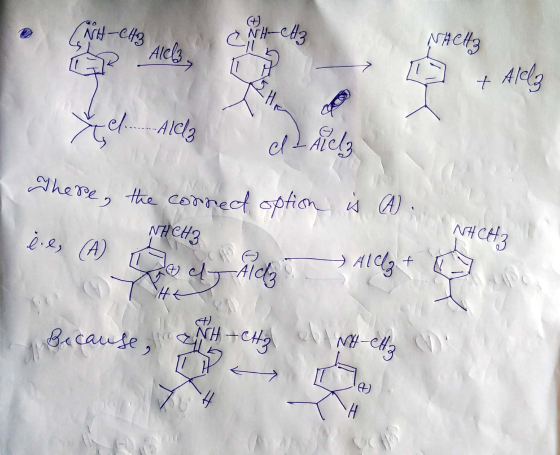 NH-CH3 (+) NH-CH3 NHCH3
AlCl3
H + AlCl3
Cl......AlCl3 Cl-AlCl3
There, the correct option is (A).
i.e, (A) NHCH3 (+) Cl-AlCl3 (-) AlCl3 + NHCH3
H
Because, (+) NH-CH3 NH-CH3
(+)
H H